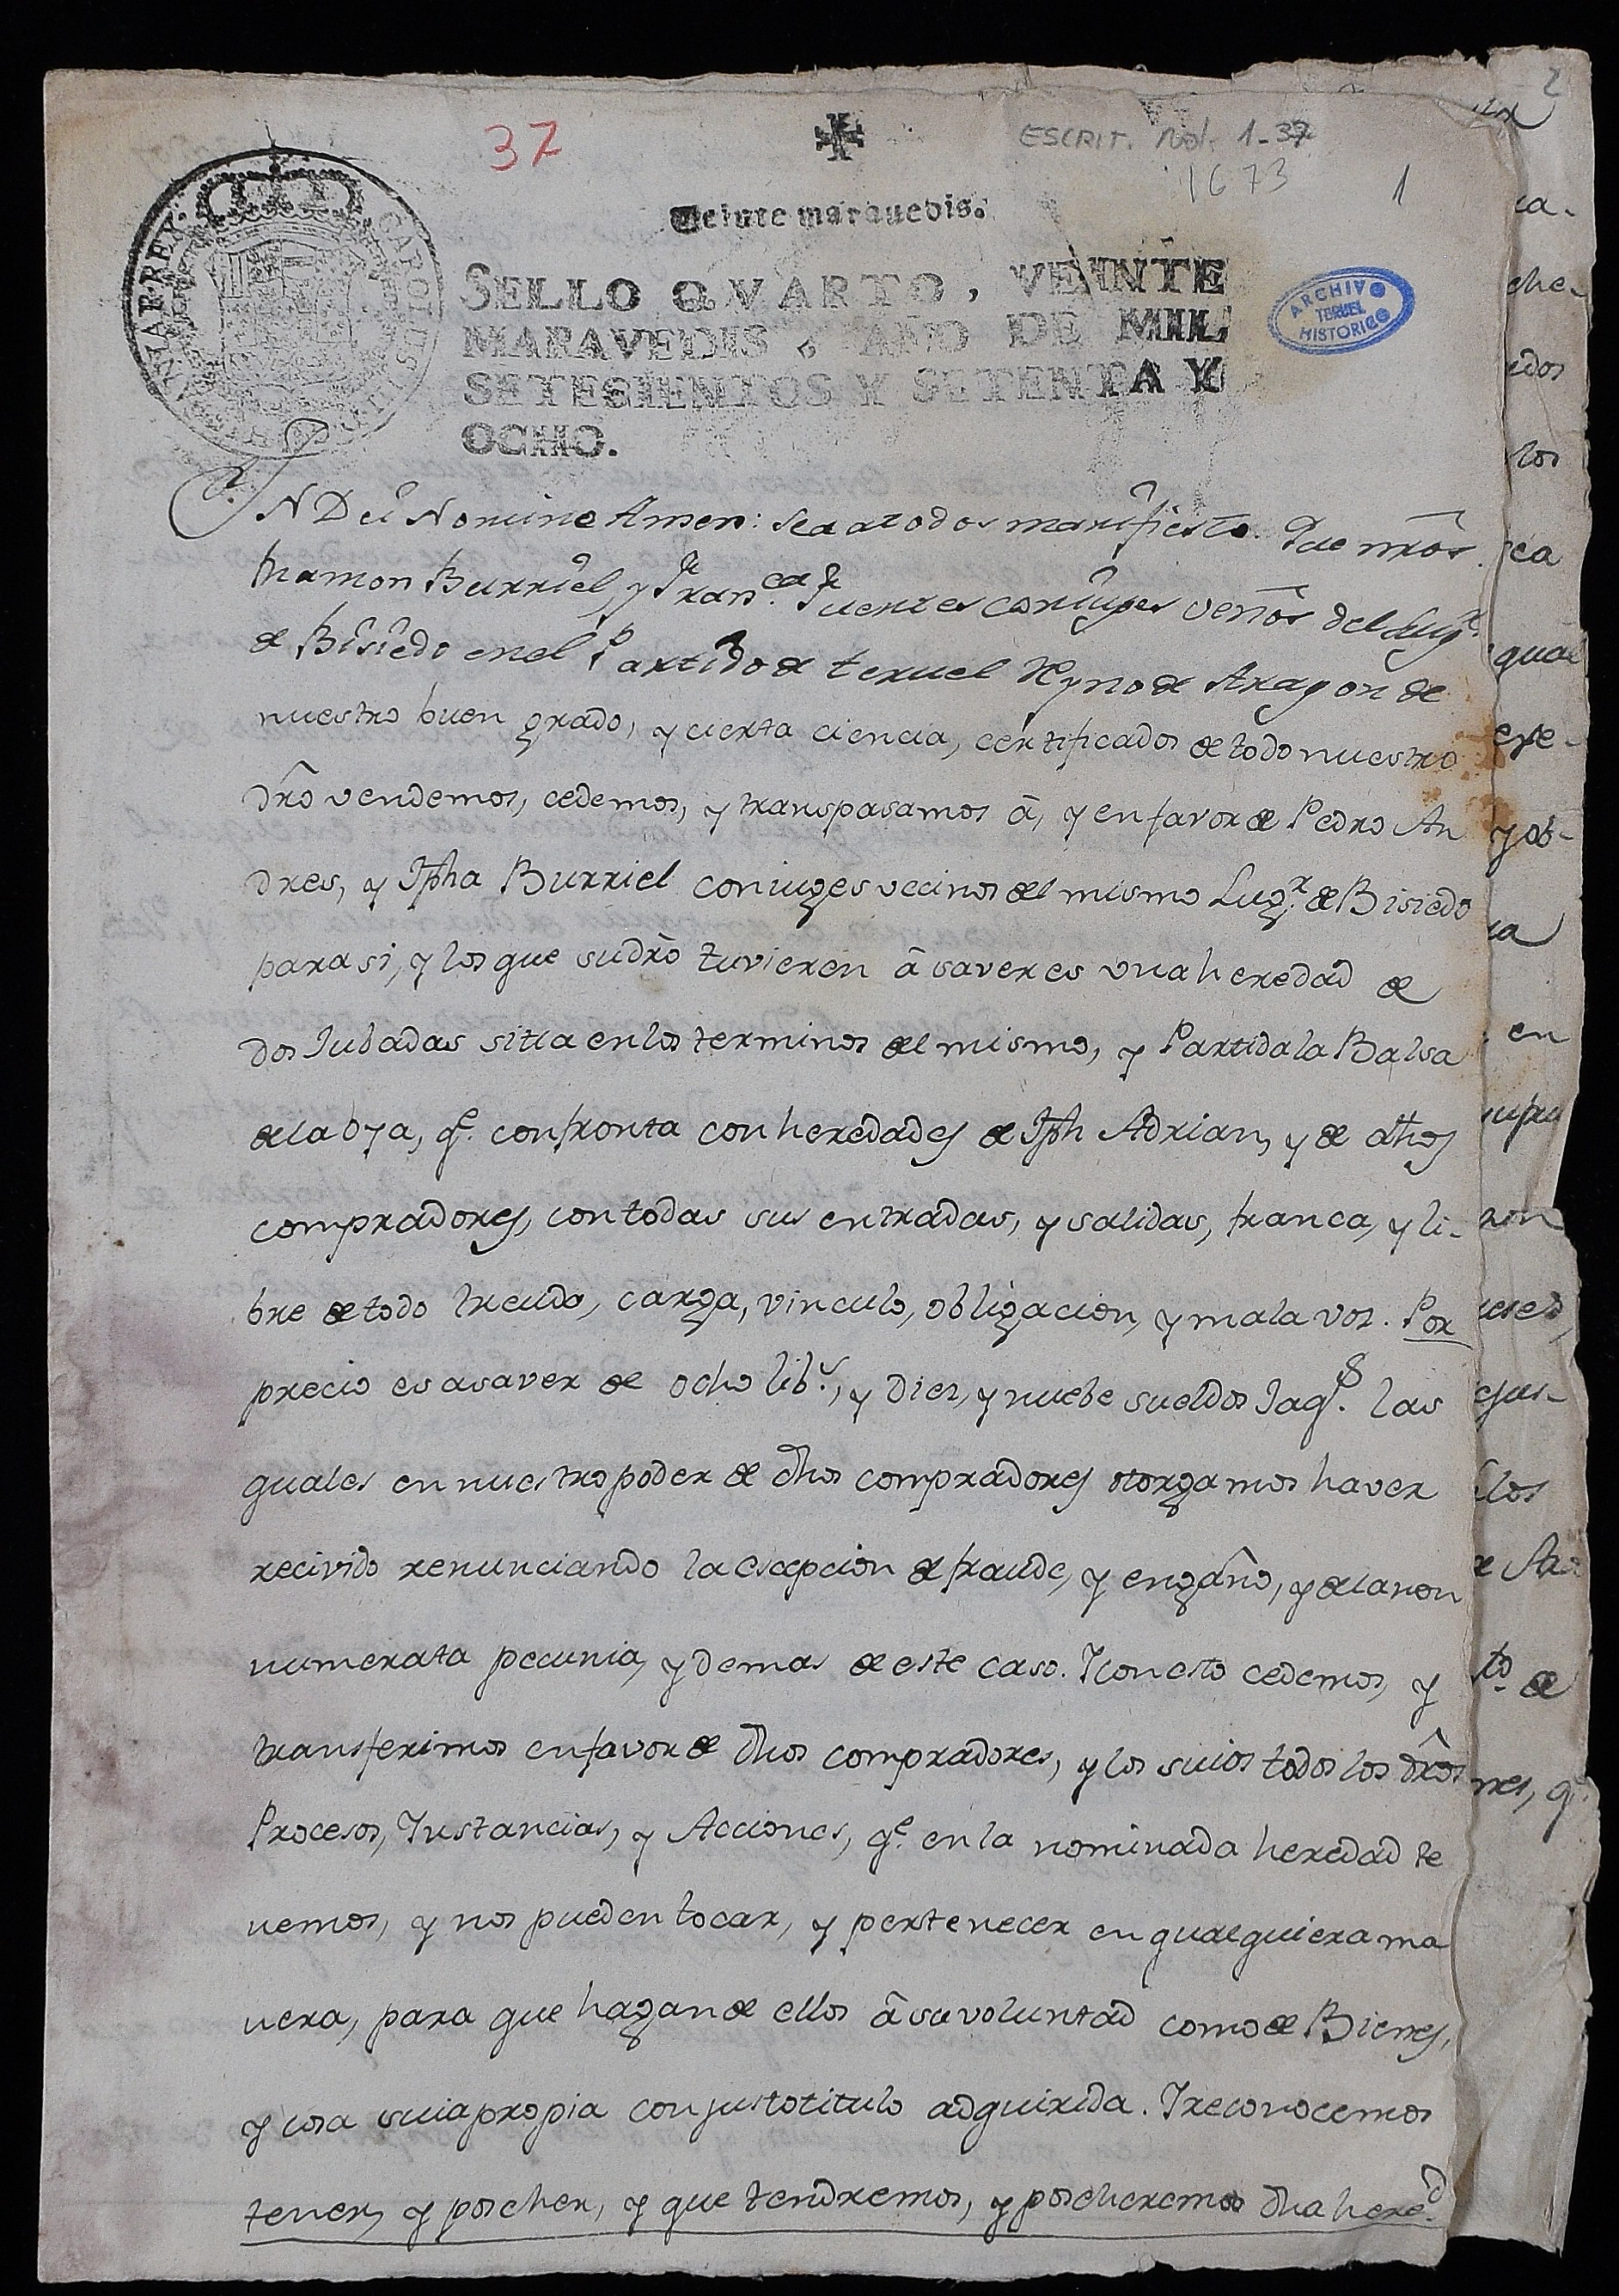 37
ESCRIT. Not. 1-37
1673
1
2
Veinte marauedis.
SELLO QVARTO, VEINTE
MARAVEDIS, AÑO DE MIL
SETECIENTOS Y SETENTA Y
OCHO.
ARCHIVO
TERUEL
HISTORICO
IN Dei Nomine Amen: Sea atodos manifiesto. Que nrõs.
Ramon Burriel, y Franca. Fuertes coniuges veñõs del Lugr.
de Bisiedo enel Partido de teruel Reyno de Aragon de
nuestro buen grado, y cierta ciencia, certificados de todo nuestro
dr̃o vendemos, cedemos, y transpasamos â, y en favor de Pedro An
dres, y Jpha Burriel coniuges vecinos del mismo Lugr. de Bisiedo
para si, y los que sudr̃o tuvieren â saver es una heredad de
dos Iubadas sitia en los terminos del mismo, y Partida la Balsa
de la oya, qe. confronta con heredades de Jph Adrian, y de dhos
compradores, con todas sus entradas, y salidas, franca, y li-
bre de todo treudo, carga, vinculo, obligacion, y mala voz. Por
precio es asaver de ocho libs., y Diez, y nuebe sueldos Jaqs. las
quales en nuestro poder de dhos compradores otorgamos haver
recivido renunciando la escepcion de fraude, y engaño, y de la non
numerata pecunia, y demas de este caso. Y con esto cedemos, y
transferimos en favor de dhos compradores, y los suios todos los dr̃os
Procesos, Instancias, y Acciones, qe. en la nominada heredad te
nemos, y nos pueden tocar, y pertenecer en qualquiera ma
nera, para que hagan de ellos â su voluntad como de Bienes,
y cosa suia propia con justo titulo adquirida. Y reconocemos
tener, y poseher, y que tendremos, y poseheremos dha hered.